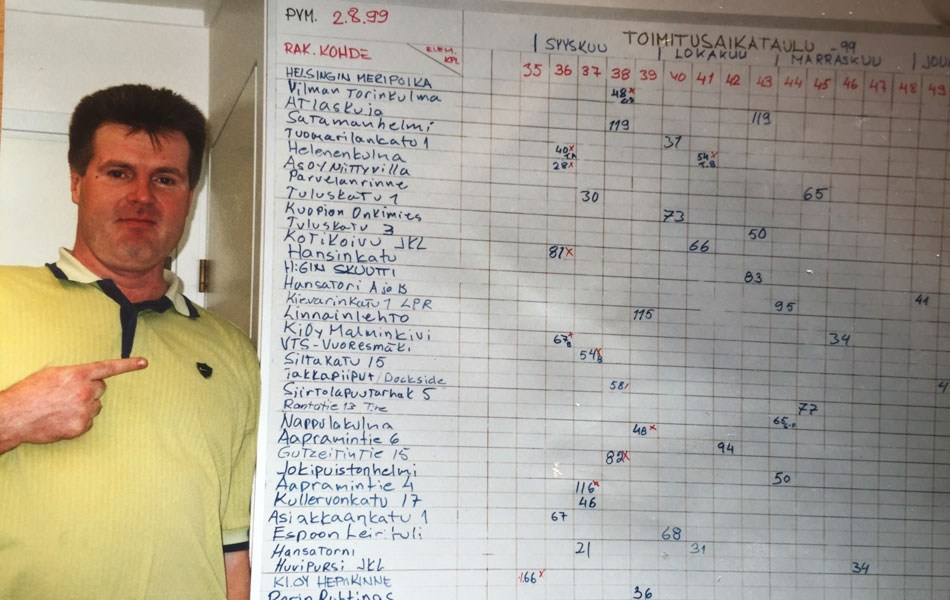 PVM. 2.8.99 TOIMITUSAIKATAULU -99
SYYSKUU LOKAKUU MARRASKUU JOU
RAK. KOHDE ELEM. KPL 35 36 37 38 39 40 41 42 43 44 45 46 47 48 49
HELSINGIN MERIPOIKA
Vilman Torinkulma 48x
Atlaskuja
Satamanhelmi 119 119
Tuomarilankatu 1 37
Helenenkulma 40x 54x
AsOy Niittyvilla 28x
Parvelanrinne
Tuluskatu 1 30 65
Kuopion Onkimies 73
Tuluskatu 3 50
Kotikoivu JKL 66
Hansinkatu 81x
H:GIN SKUUTTI 83
Hansatori A ja B
Kievarinkatu 1 LPR 95 41
Linnainlehto 115
KiOy Malminkivi 67x 34
VTS-Vuoresmäki 54x
Siltakatu 15
Jakkapiiput / Dockside 58
Siirtolapuutarhak 5
Rantatie 13 T:re 77
Nappulakulma 48x 65
Aapramintie 6 94
Gutzeitintie 15 82x
Jokipuistonhelmi 50
Aapramintie 4 116x
Kullervonkatu 17 46
Asiakkaankatu 1 67
Espoon Leirituli 68
Hansatorni 21 31
Huvipursi JKL 34
KI.OY 166x
36